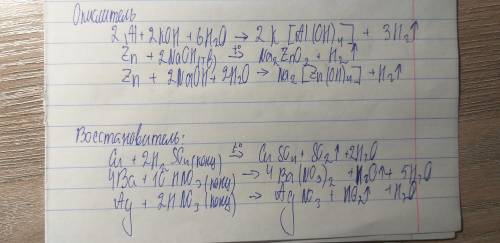 Окислитель
2Al + 2KOH + 6H2O → 2K[Al(OH)4] + 3H2↑
Zn + 2NaOH(тв) t°⇒ Na2ZnO2 + H2↑
Zn + 2NaOH + 2H2O → Na2[Zn(OH)4] + H2↑
Восстановитель:
Cu + 2H2SO4(конц) t°⇒ CuSO4 + SO2↑ + 2H2O
4Ba + 10HNO3(конц) → 4Ba(NO3)2 + N2O↑ + 5H2O
Ag + 2HNO3(конц) → AgNO3 + NO2↑ + H2O